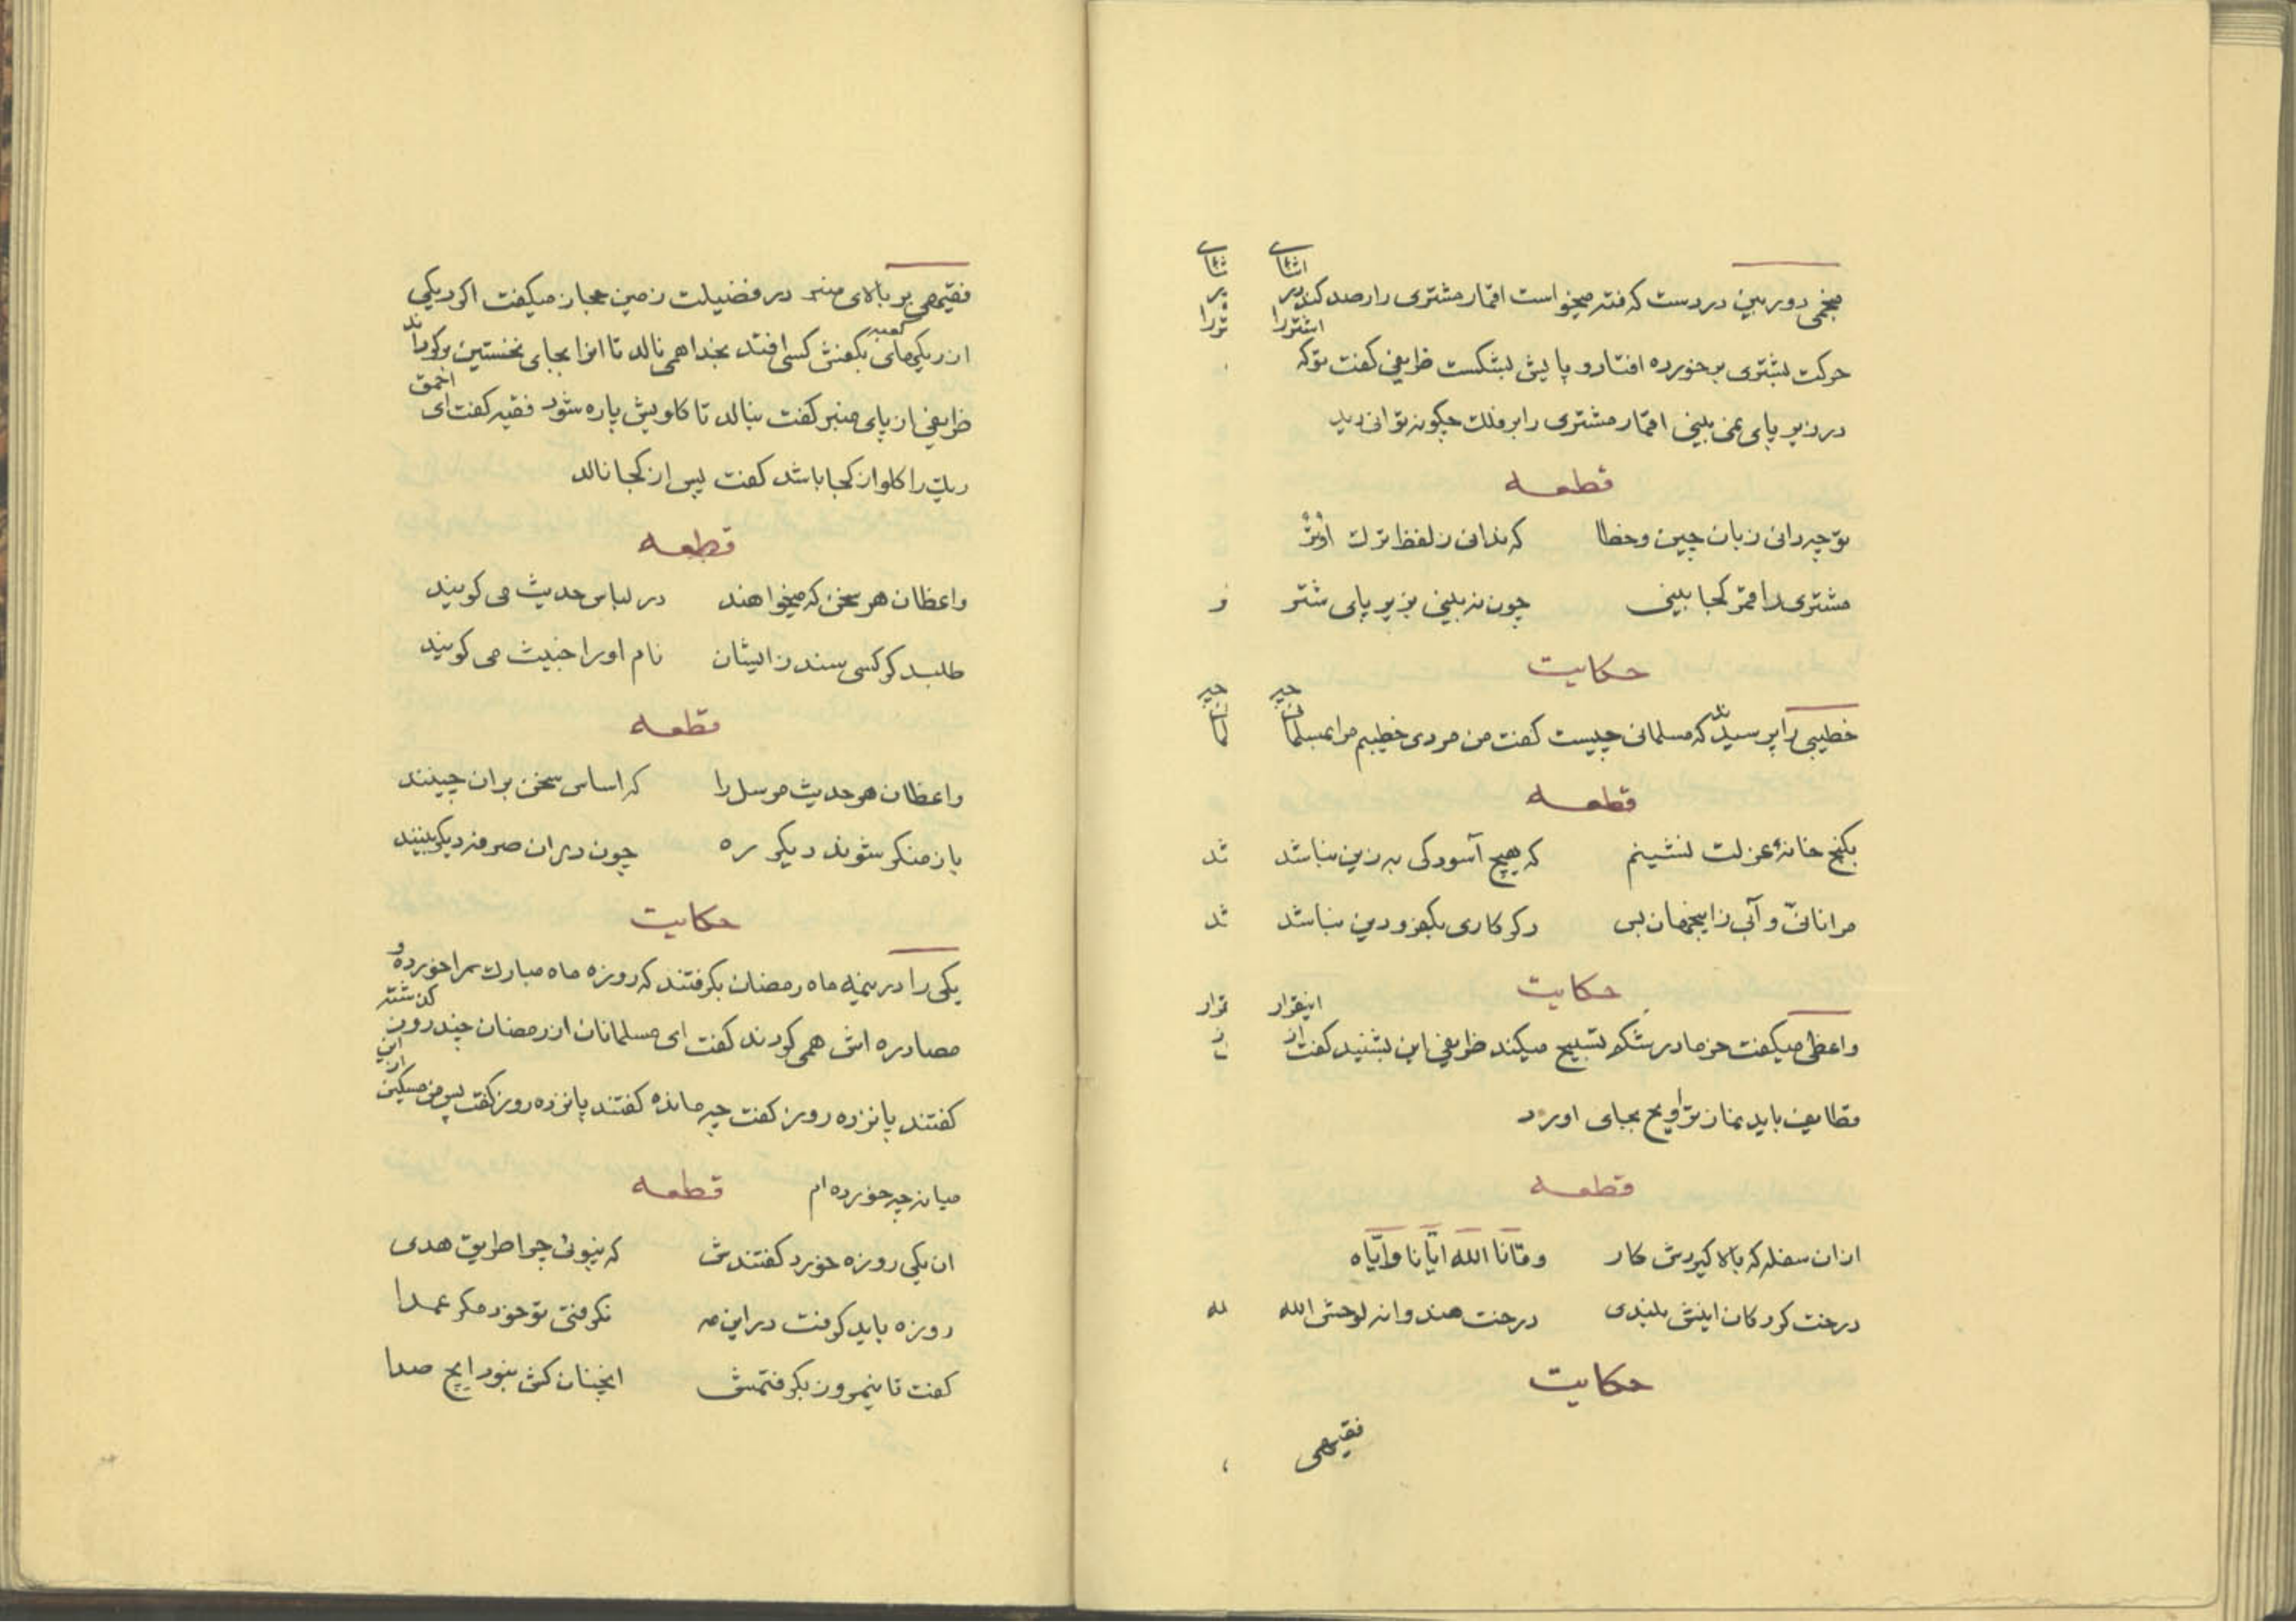 منجمی دوربین در دست که فتہ میخواست اقمار مشتری را رصد کند در اثنای
حرکت بشتری برخورده افتاد و پایش بشکست ظریفی کفت توکه اشتر را
در زیر پای نمی بینی اقمار مشتری را بر فلک چکونه توانی دید
قطعه
تو چه دانی زبان چین و خطا که ندانی ز لفظ ترک اوتر
مشتری را قمر کجا بینی چون نه بینی بزیر پای شتر
حکایت
خطیبی را پرسیدند که مسلمانی چیست کفت من مردی خطیبم مرا بمسلمانی چه
قطعه
بکنج خانهٔ عزلت نشینم که هیچ آسودکی به زین نباشد
مرا نانی و آبی زاینجهان بس دکر کاری بکفر و دین نباشد
حکایت
واعظی میکفت خرما در شکم تسبیح میکند ظریفی این بشنید کفت از اینقرار
قطایف باید نماز تراویح بجای اورد
قطعه
ازان سفله که بالا کیردش کار وقانا الله ایانا وایاه
درخت کردکان اینش بلندی درخت هندوانه لوحش الله
حکایت
فقیهی
فقیهی بر بالای منبر در فضیلت زمین حجاز میکفت اکر ریکی
از ریکهای کعبه بکفش کسی افتد بخدا همی نالد تا انرا بجای نخستین برکردانند
ظریفی از پای منبر کفت بنالد تا کلویش پاره شود فقیه کفت ای احمق
ریک را کلو از کجا باشد کفت پس از کجا نالد
قطعه
واعظان هر سخن که میخواهند در لباس حدیث می کویند
طلبد کر کسی سند زایشان نام او را خبیث می کویند
قطعه
واعظان هر حدیث مرسل را که اساس سخن بران چینند
باز منکر شوند دیکر ره چون دران صرفه دیکر بینند
حکایت
یکی را در نیمهٔ ماه رمضان بکرفتند که روزه ماه مبارک را خورده و
مصادره اش همی کردند کفت ای مسلمانان از رمضان چند روز کذشته
کفتند پانزده روز کفت چه مانده کفتند پانزده روز کفت پس من مسکین از این
میانه چه خورده ام قطعه
ان یکی روزه خورد کفتندش که نپوئی چرا طریق هدی
روزه باید کرفت در این مه نکرفتی تو خود مکر عمدا
کفت تا نیمروز بکرفتمش انچنان کش نبود ایچ صدا